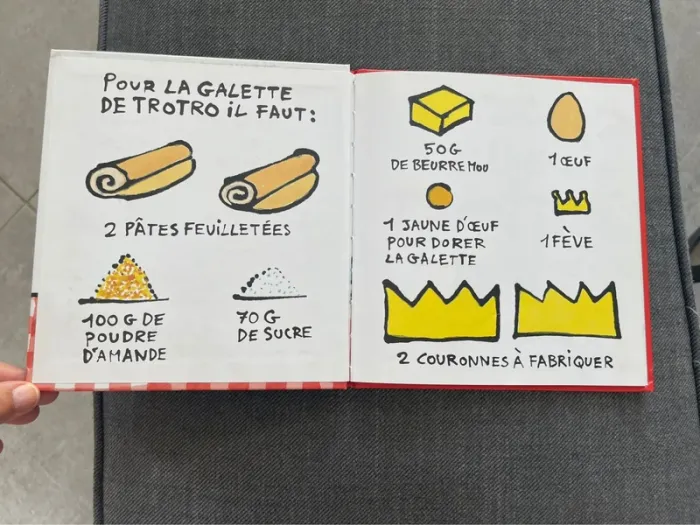 POUR LA GALETTE
DE TROTRO iL FAUT:
2 PÂTES FEUILLETÉES
100 G DE
POUDRE
D'AMANDE
70 G
DE SUCRE
50 G
DE BEURRE MOU
1 ŒUF
1 JAUNE D'ŒUF
POUR DORER
LA GALETTE
1 FÈVE
2 COURONNES À FABRIQUER